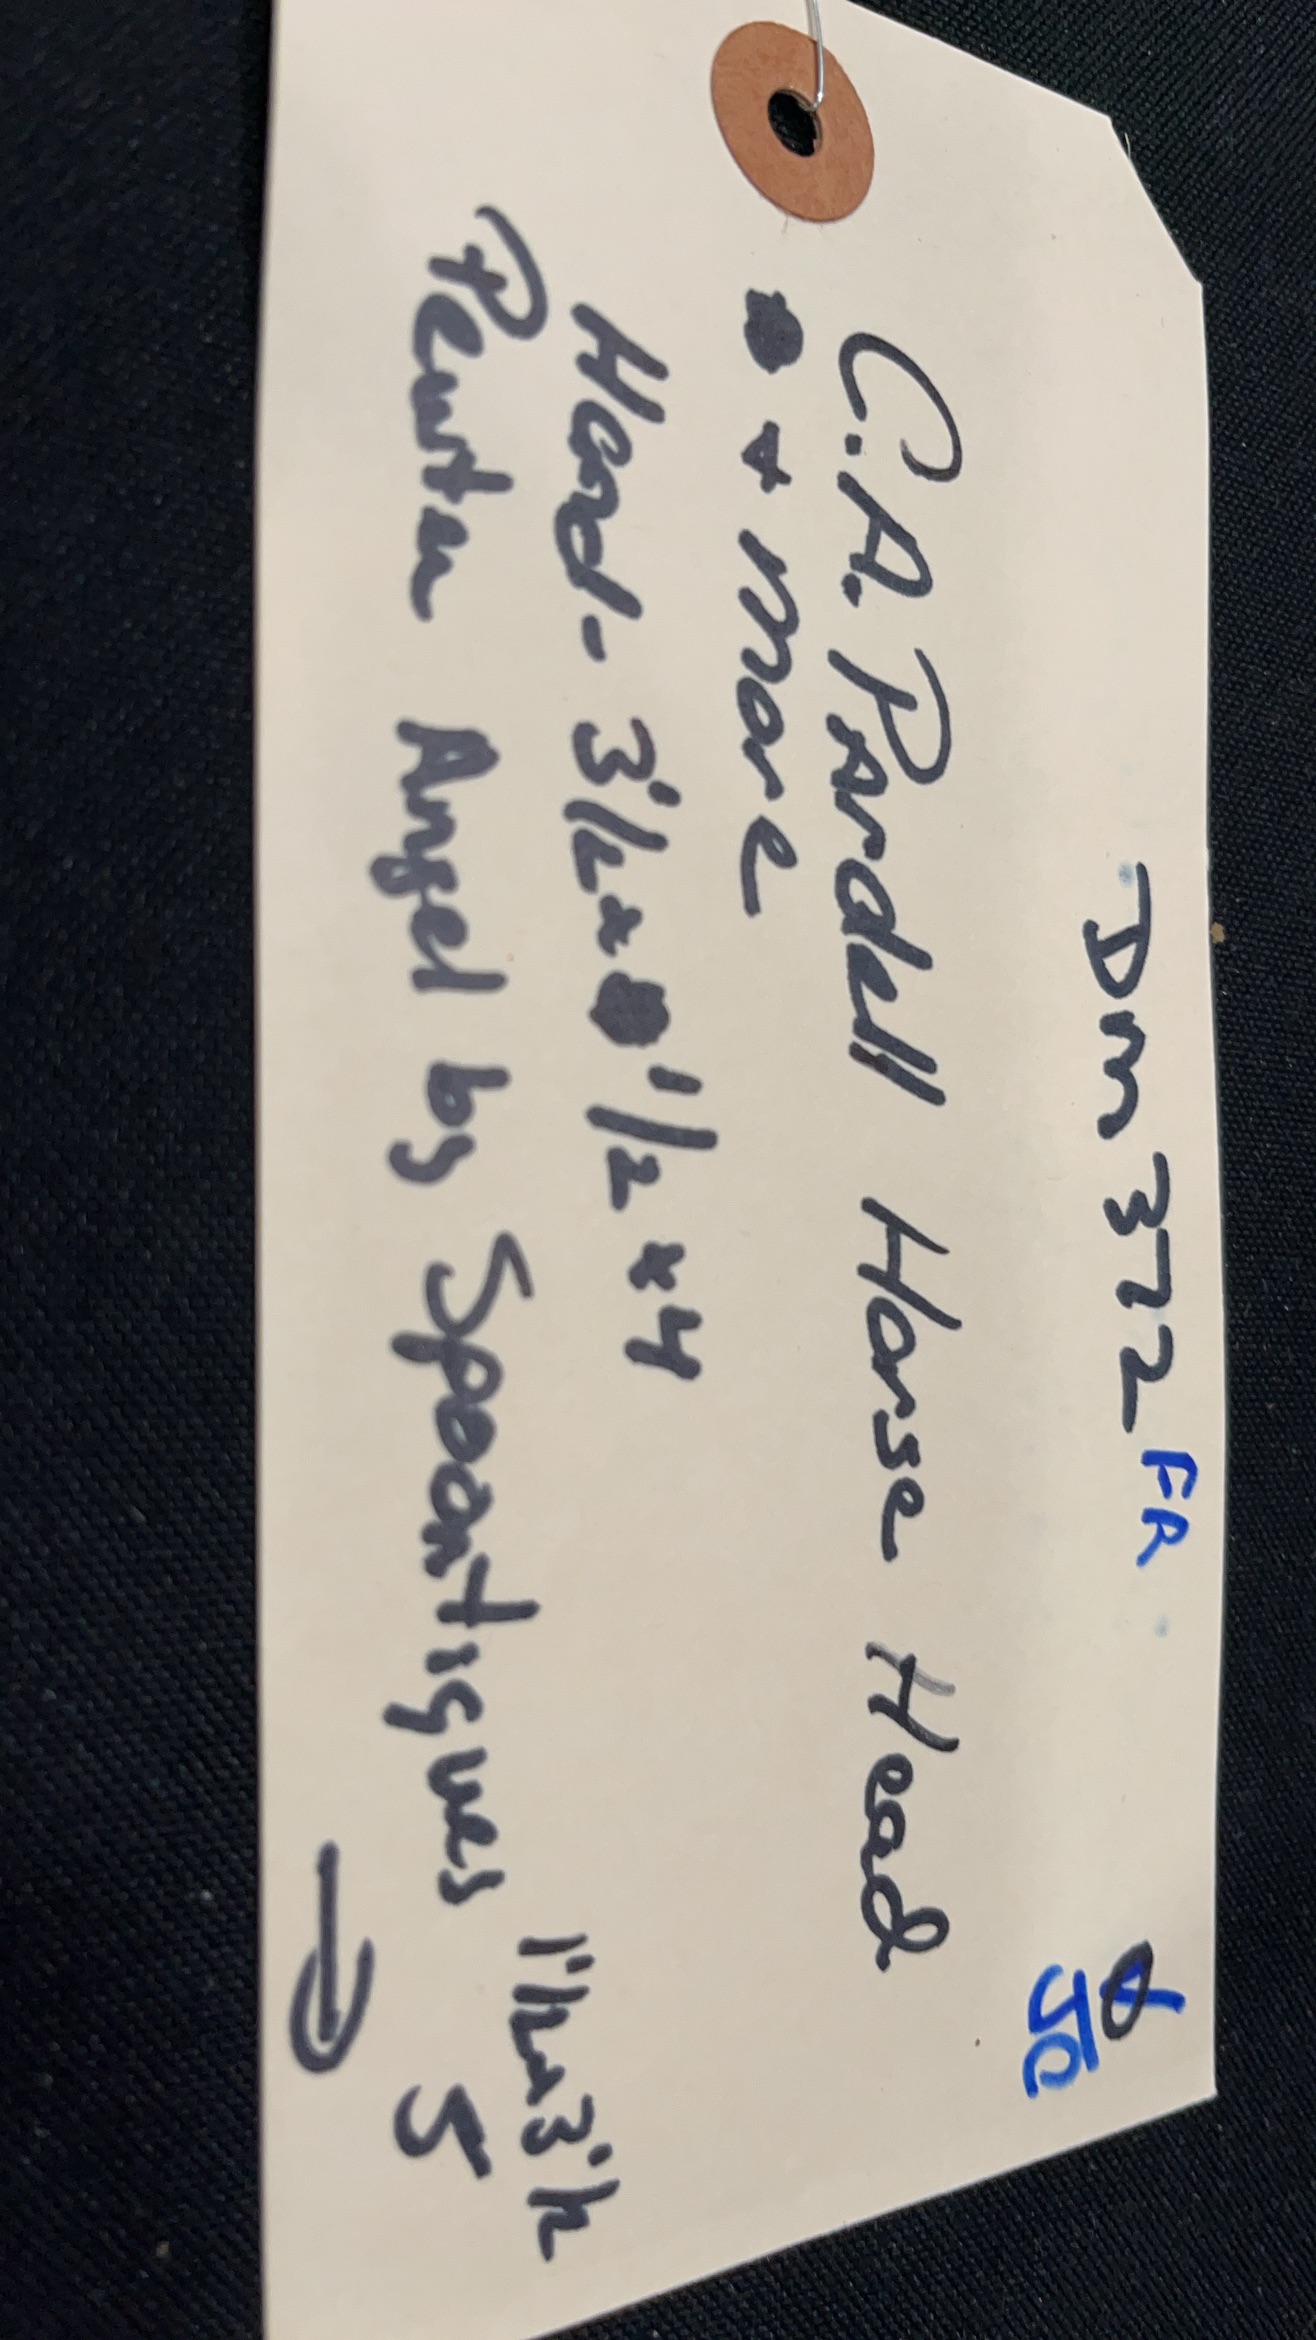 Dm 372 FR
JC
C.A. Pardell Horse Head
+ more
Head - 3 1/2 x 1/2 x 4
Pewter Angel by Spoontiques 1 1/2 x 3 1/2
5